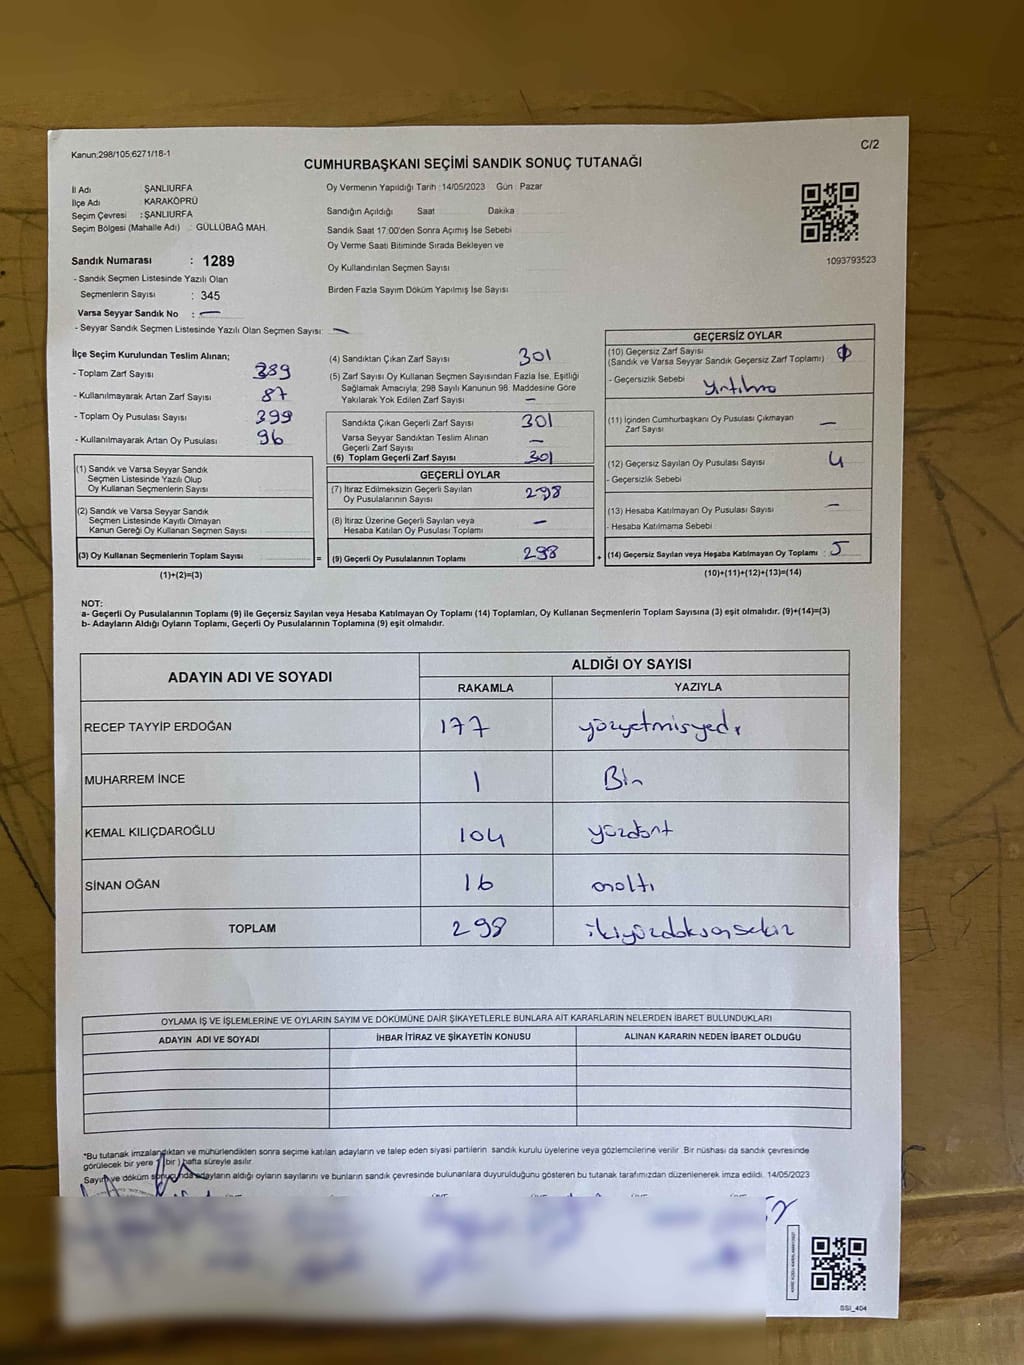 Kanun;298/105,6271/18-1
C/2
CUMHURBAŞKANI SEÇİMİ SANDIK SONUÇ TUTANAĞI
İl Adı : ŞANLIURFA
İlçe Adı : KARAKÖPRÜ
Seçim Çevresi : ŞANLIURFA
Seçim Bölgesi (Mahalle Adı) : GÜLLÜBAĞ MAH.
Sandık Numarası : 1289
- Sandık Seçmen Listesinde Yazılı Olan
Seçmenlerin Sayısı : 345
Varsa Seyyar Sandık No : —
- Seyyar Sandık Seçmen Listesinde Yazılı Olan Seçmen Sayısı: —
Oy Vermenin Yapıldığı Tarih :14/05/2023 Gün : Pazar
Sandığın Açıldığı Saat Dakika
Sandık Saat 17.00'den Sonra Açımış İse Sebebi
Oy Verme Saati Bitiminde Sırada Bekleyen ve
Oy Kullandırılan Seçmen Sayısı
Birden Fazla Sayım Döküm Yapılmış İse Sayısı
1093793523
İlçe Seçim Kurulundan Teslim Alınan;
- Toplam Zarf Sayısı 389
- Kullanılmayarak Artan Zarf Sayısı 87
- Toplam Oy Pusulası Sayısı 399
- Kullanılmayarak Artan Oy Pusulası 96
(1) Sandık ve Varsa Seyyar Sandık
Seçmen Listesinde Yazılı Olup
Oy Kullanan Seçmenlerin Sayısı
(2) Sandık ve Varsa Seyyar Sandık
Seçmen Listesinde Kayıtlı Olmayan
Kanun Gereği Oy Kullanan Seçmen Sayısı
(3) Oy Kullanan Seçmenlerin Toplam Sayısı =
(1)+(2)=(3)
(4) Sandıktan Çıkan Zarf Sayısı 301
(5) Zarf Sayısı Oy Kullanan Seçmen Sayısından Fazla İse, Eşitliği
Sağlamak Amacıyla; 298 Sayılı Kanunun 98. Maddesine Göre
Yakılarak Yok Edilen Zarf Sayısı —
Sandıkta Çıkan Geçerli Zarf Sayısı 301
Varsa Seyyar Sandıktan Teslim Alınan
Geçerli Zarf Sayısı —
(6) Toplam Geçerli Zarf Sayısı 301
GEÇERLİ OYLAR
(7) İtiraz Edilmeksizin Geçerli Sayılan
Oy Pusulalarının Sayısı 298
(8) İtiraz Üzerine Geçerli Sayılan veya
Hesaba Katılan Oy Pusulası Toplamı —
(9) Geçerli Oy Pusulalarının Toplamı 298 +
GEÇERSİZ OYLAR
(10) Geçersiz Zarf Sayısı
(Sandık ve Varsa Seyyar Sandık Geçersiz Zarf Toplamı)
- Geçersizlik Sebebi yırtılma
(11) İçinden Cumhurbaşkanı Oy Pusulası Çıkmayan
Zarf Sayısı —
(12) Geçersiz Sayılan Oy Pusulası Sayısı 4
- Geçersizlik Sebebi
(13) Hesaba Katılmayan Oy Pusulası Sayısı —
- Hesaba Katılmama Sebebi
(14) Geçersiz Sayılan veya Hesaba Katılmayan Oy Toplamı : 5
(10)+(11)+(12)+(13)=(14)
NOT:
a- Geçerli Oy Pusulalarının Toplamı (9) ile Geçersiz Sayılan veya Hesaba Katılmayan Oy Toplamı (14) Toplamları, Oy Kullanan Seçmenlerin Toplam Sayısına (3) eşit olmalıdır. (9)+(14)=(3)
b- Adayların Aldığı Oyların Toplamı, Geçerli Oy Pusulalarının Toplamına (9) eşit olmalıdır.
ADAYIN ADI VE SOYADI ALDIĞI OY SAYISI
RAKAMLA YAZIYLA
RECEP TAYYİP ERDOĞAN 177 yüzyetmişyedi
MUHARREM İNCE 1 Bir
KEMAL KILIÇDAROĞLU 104 yüzdört
SİNAN OĞAN 16 onaltı
TOPLAM 298 ikiyüzdoksansekiz
OYLAMA İŞ VE İŞLEMLERİNE VE OYLARIN SAYIM VE DÖKÜMÜNE DAİR ŞİKAYETLERLE BUNLARA AİT KARARLARIN NELERDEN İBARET BULUNDUKLARI
ADAYIN ADI VE SOYADI İHBAR İTİRAZ VE ŞİKAYETİN KONUSU ALINAN KARARIN NEDEN İBARET OLDUĞU
*Bu tutanak imzalandıktan ve mühürlendikten sonra seçime katılan adayların ve talep eden siyasi partilerin sandık kurulu üyelerine veya gözlemcilerine verilir. Bir nüshası da sandık çevresinde
görülecek bir yere 1 (bir) hafta süreyle asılır.
Sayım ve döküm sonucunda adayların aldığı oyların sayılarını ve bunların sandık çevresinde bulunanlara duyurulduğunu gösteren bu tutanak tarafımızdan düzenlenerek imza edildi. 14/05/2023
SSI_404